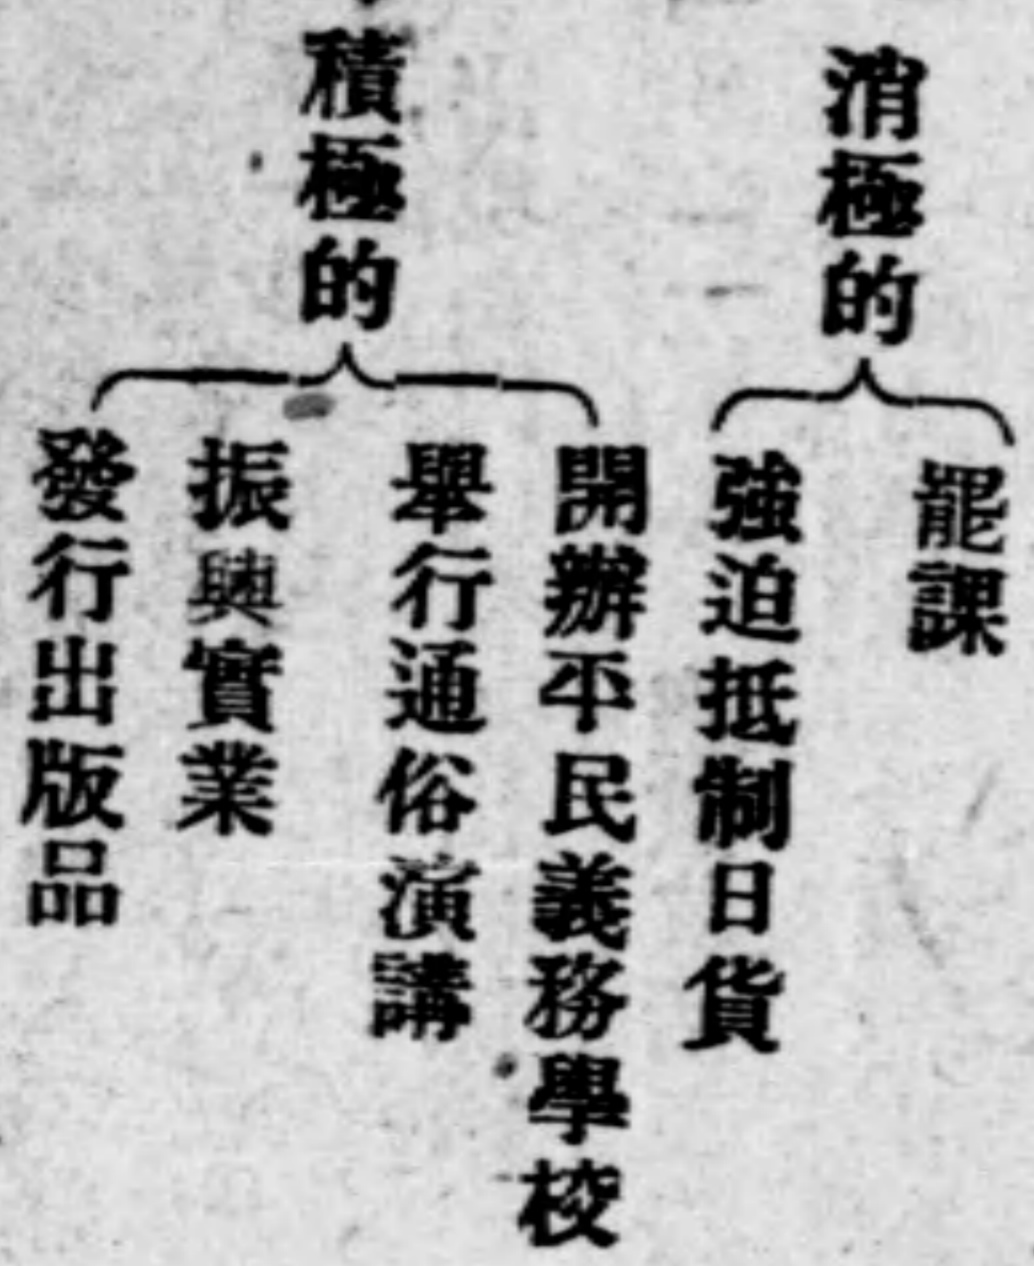 消極的
罷課
強迫抵制日貨
積極的
開辦平民義務學校
舉行通俗演講
振興實業
發行出版品